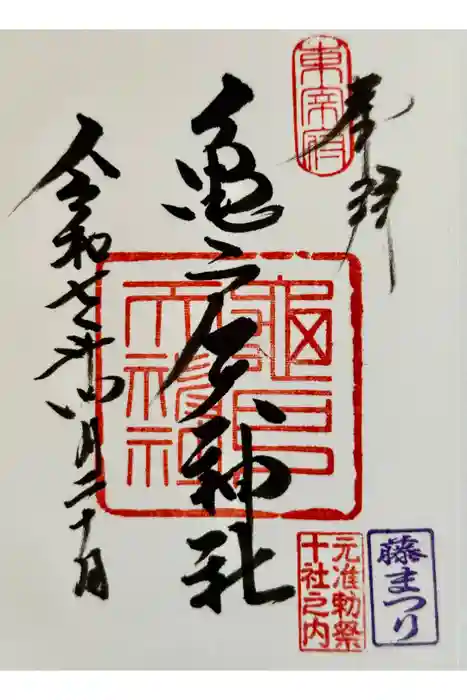 東宰府
奉拝
亀戸天神社
令和七年四月二十日
元准勅祭
十社之内
藤まつり